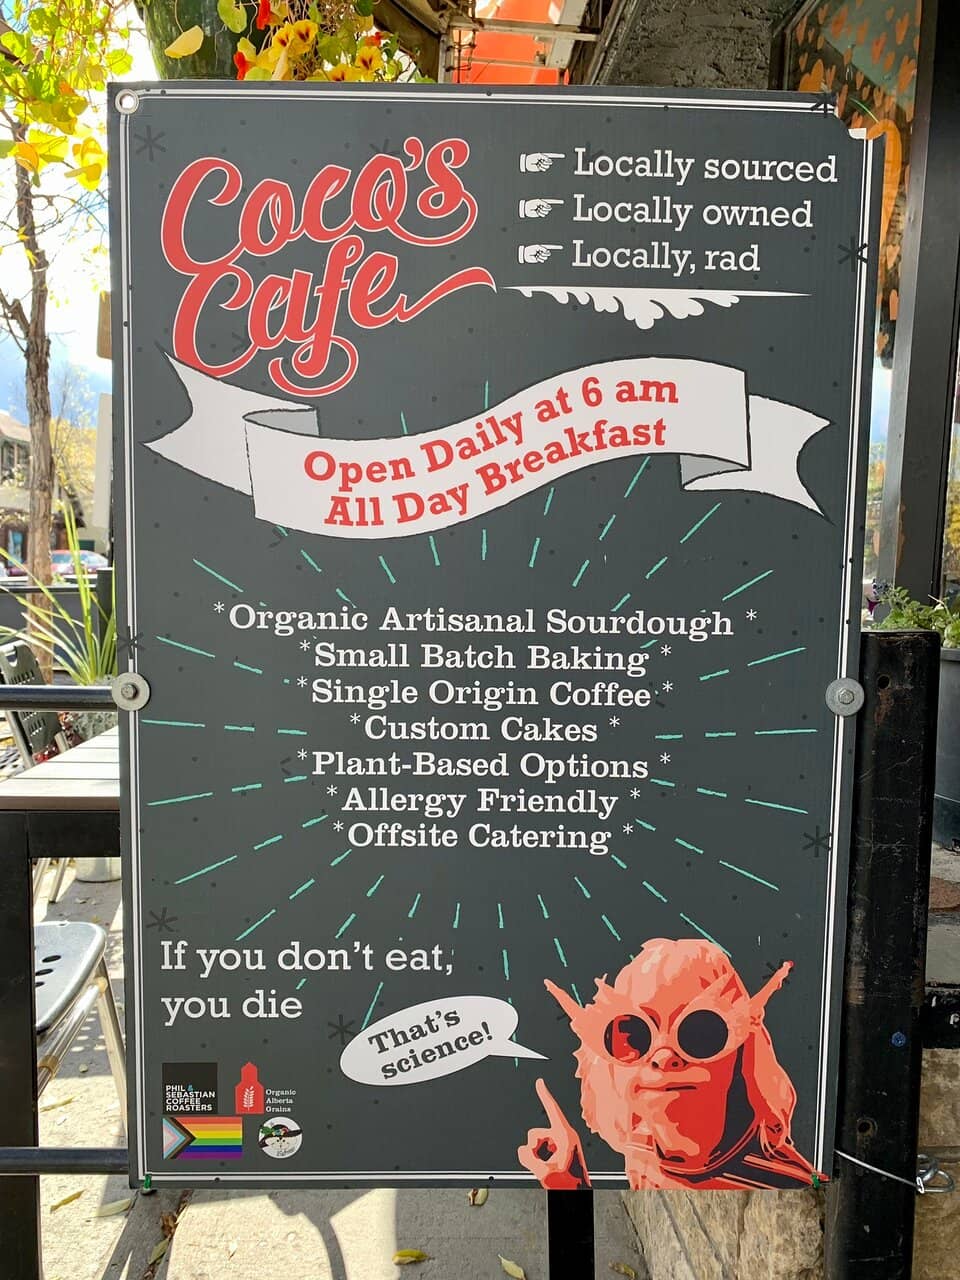 Coco's
Cafe
Locally sourced
Locally owned
Locally, rad
Open Daily at 6 am
All Day Breakfast
*Organic Artisanal Sourdough *
*Small Batch Baking *
*Single Origin Coffee *
*Custom Cakes *
*Plant-Based Options *
*Allergy Friendly *
*Offsite Catering *
If you don't eat,
you die
That's
science!
PHIL &
SEBASTIAN
COFFEE
ROASTERS
Organic
Alberta
Grains